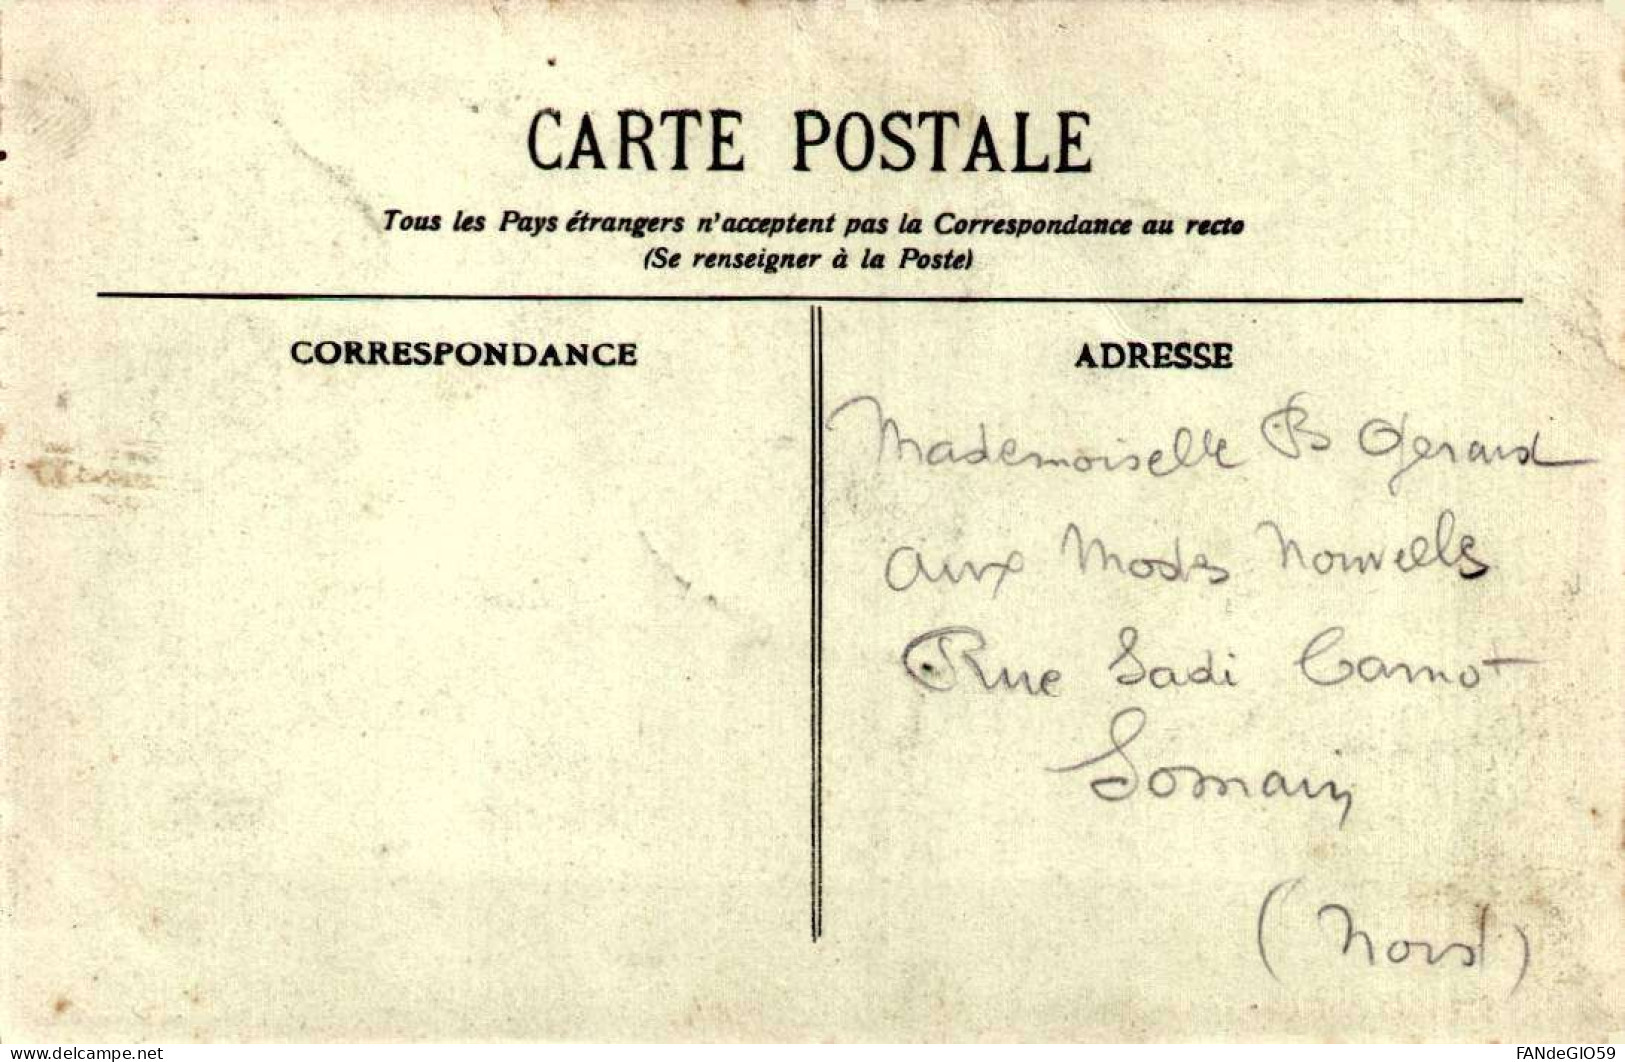 CARTE POSTALE
Tous les Pays étrangers n'acceptent pas la Correspondance au recto
(Se renseigner à la Poste)
CORRESPONDANCE
ADRESSE
Mademoiselle B Gerard
aux Modes Nouvelles
Rue Sadi Carnot
Somain
(Nord)
www.delcampe.net
FANdeGIO59